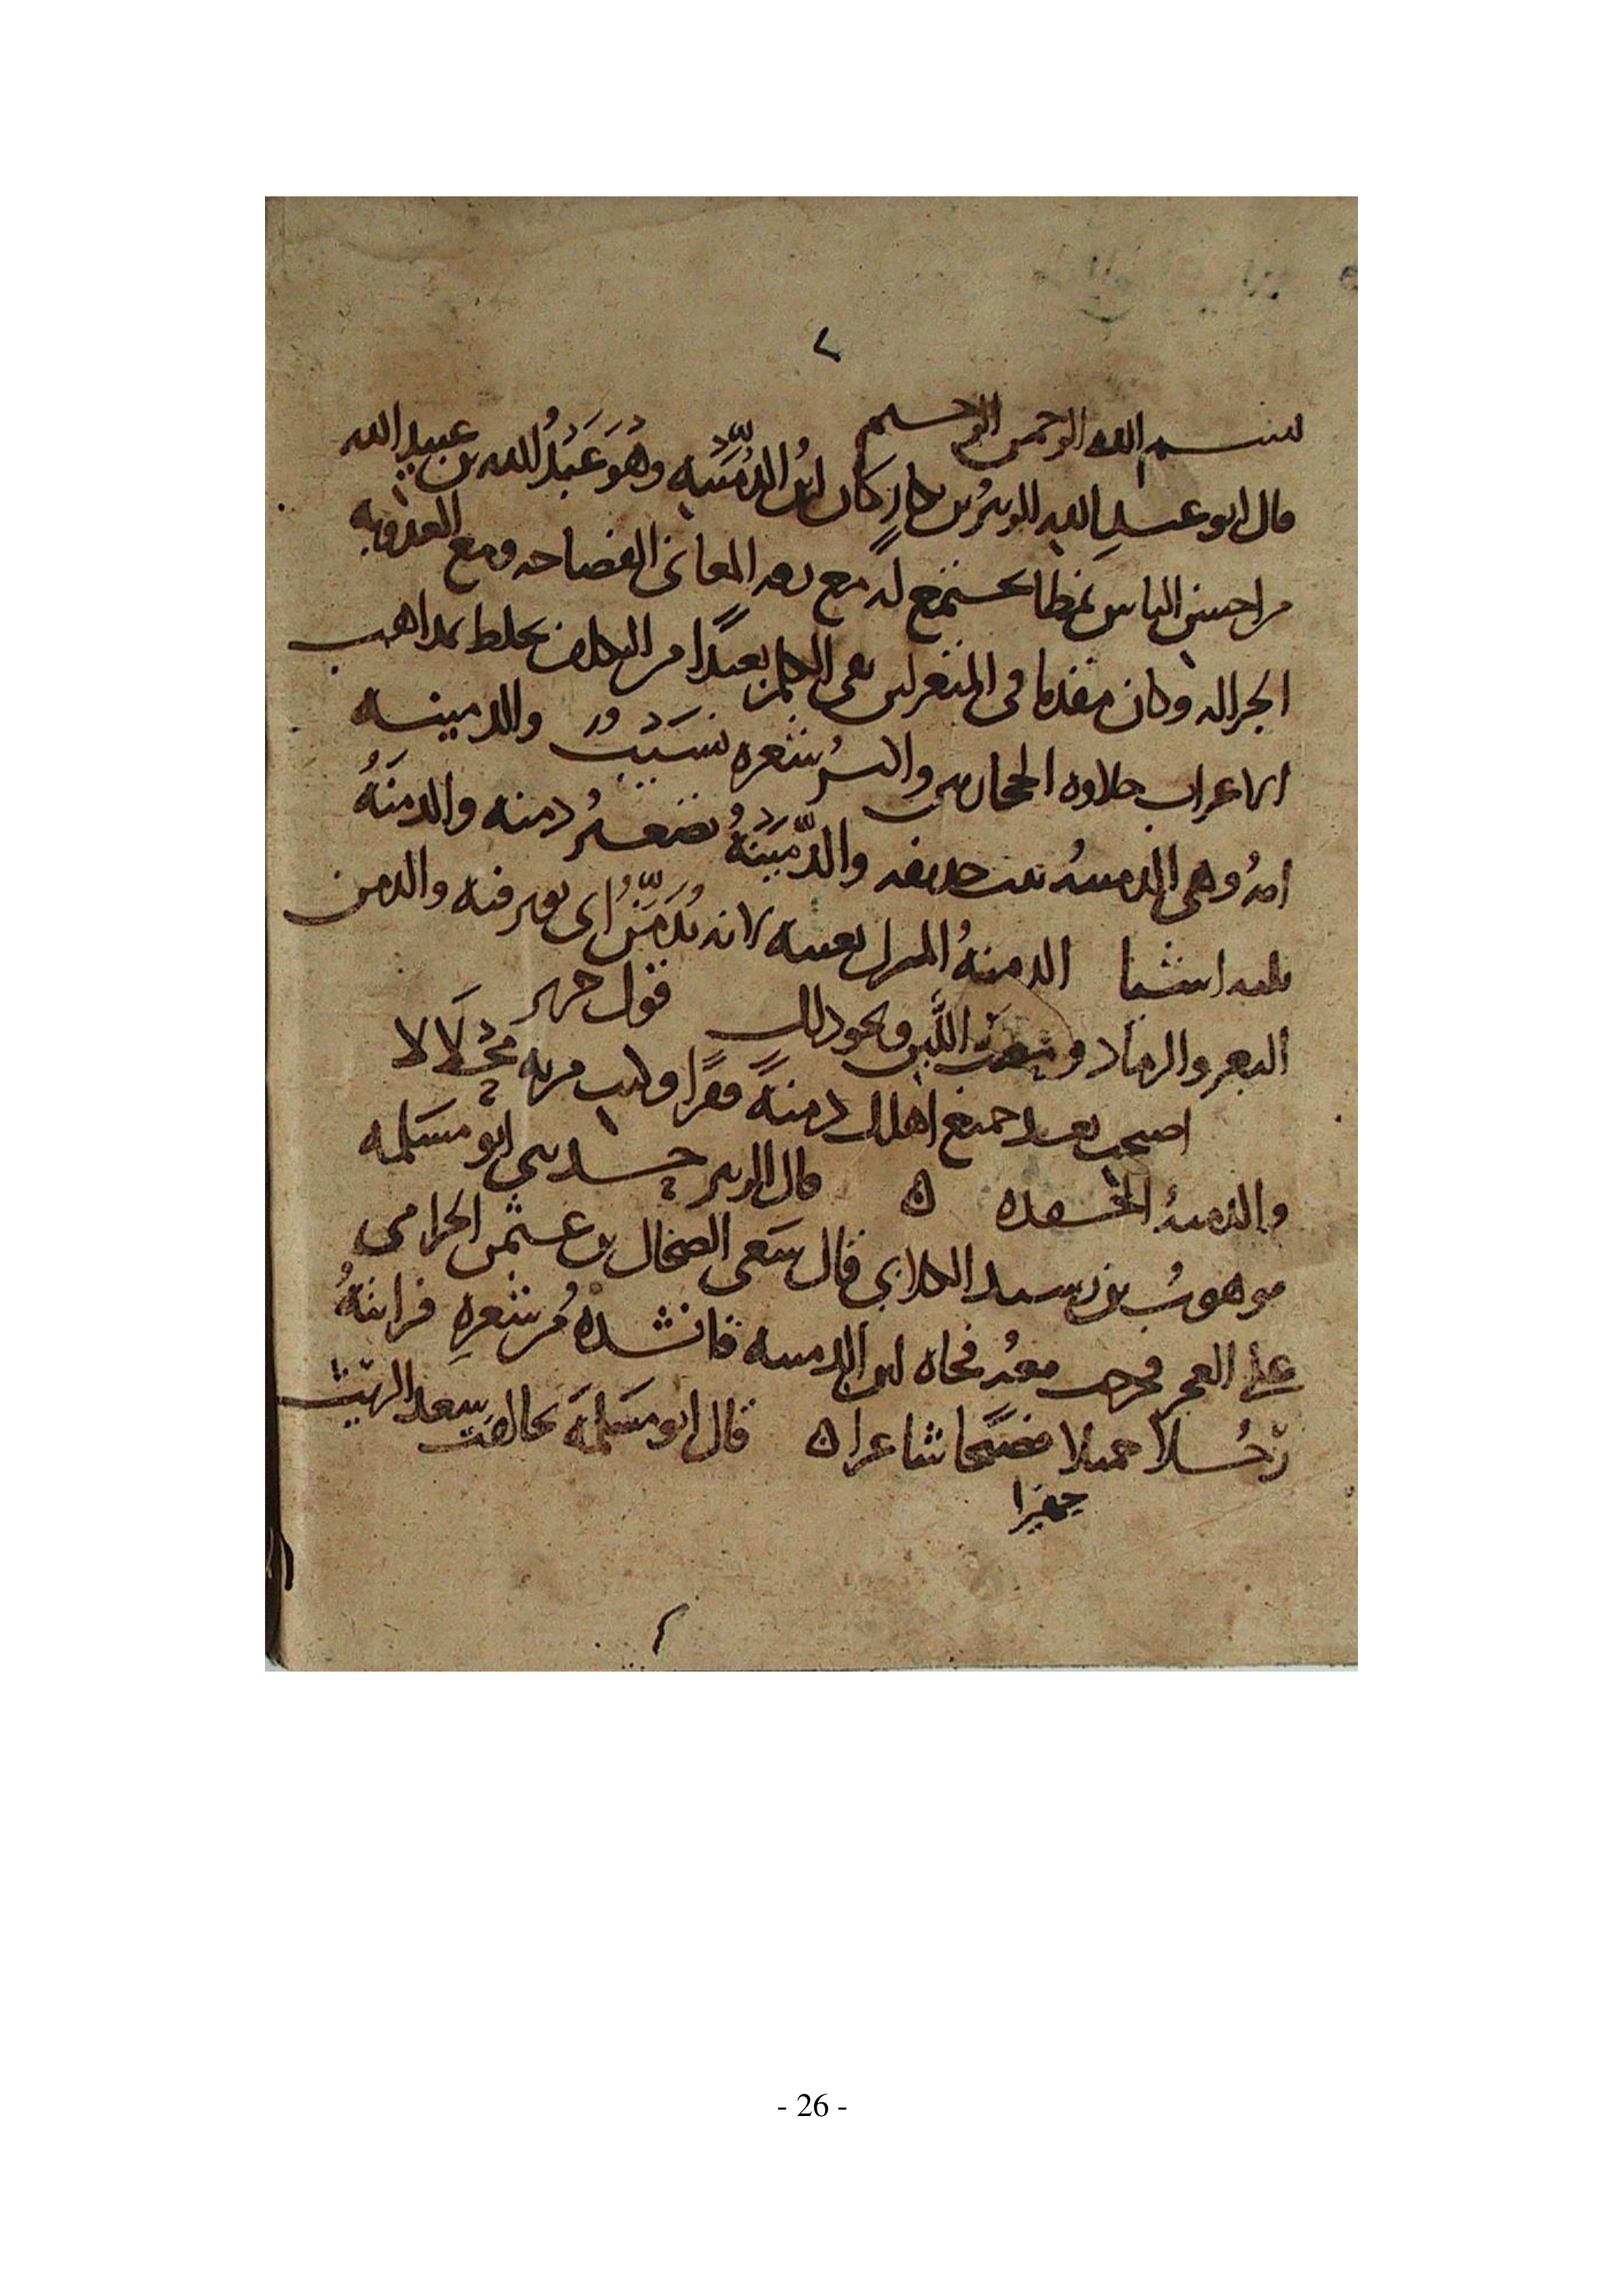 ٢
بسم الله الرحمن الرحيم
قال ابو عبد الله الزبير بن بكار كان ابن الدُّمَيْنَه وهُوَ عَبْدُ الله بن عبيد الله
من احسن الناس نمطا يجتمع له مع دقه المعاني الفصاحه ومع العذوبه
الجزاله وكان مقدما في المتغزلين نقي الكلام بعيدًا من التكلف يخلط بمذاهب
الاعراب حلاوه الحجازيين واكثرُ شعره نَسِيْبٌ والدمينه
امهُ وهي الدمينهُ بنت حذيفه والدُّمَيْنَةُ تصغيرُ دمنه والدمنَهُ
ثلثه اشيا الدمنهُ المنزل بعينه لانه يُدَمَّنُ اى يوثر فيه والدمن
البعر والرماد ومصب اللَّبَن ونحو ذلك قول جرير
اصبحت بعد جميع اهلك دمنةً قفرًا وكنت مربه مِحْلَالا
والدمنهُ الحقده ه قال الزبير حدثني ابو مسلمه
موهوبُ بن رشيد الكلابي قال سَعَى الضحاك بن عثمن الحزامي
على فخرجت معهُ فجاه ابن الدمينه فانشدهُ من شعرِهِ فرايتهُ
رَجُلًا جميلا فصيحا شاعرا ه قال ابو مَسْلَمَه تحالفت
جهيرا
٢
- 26 -